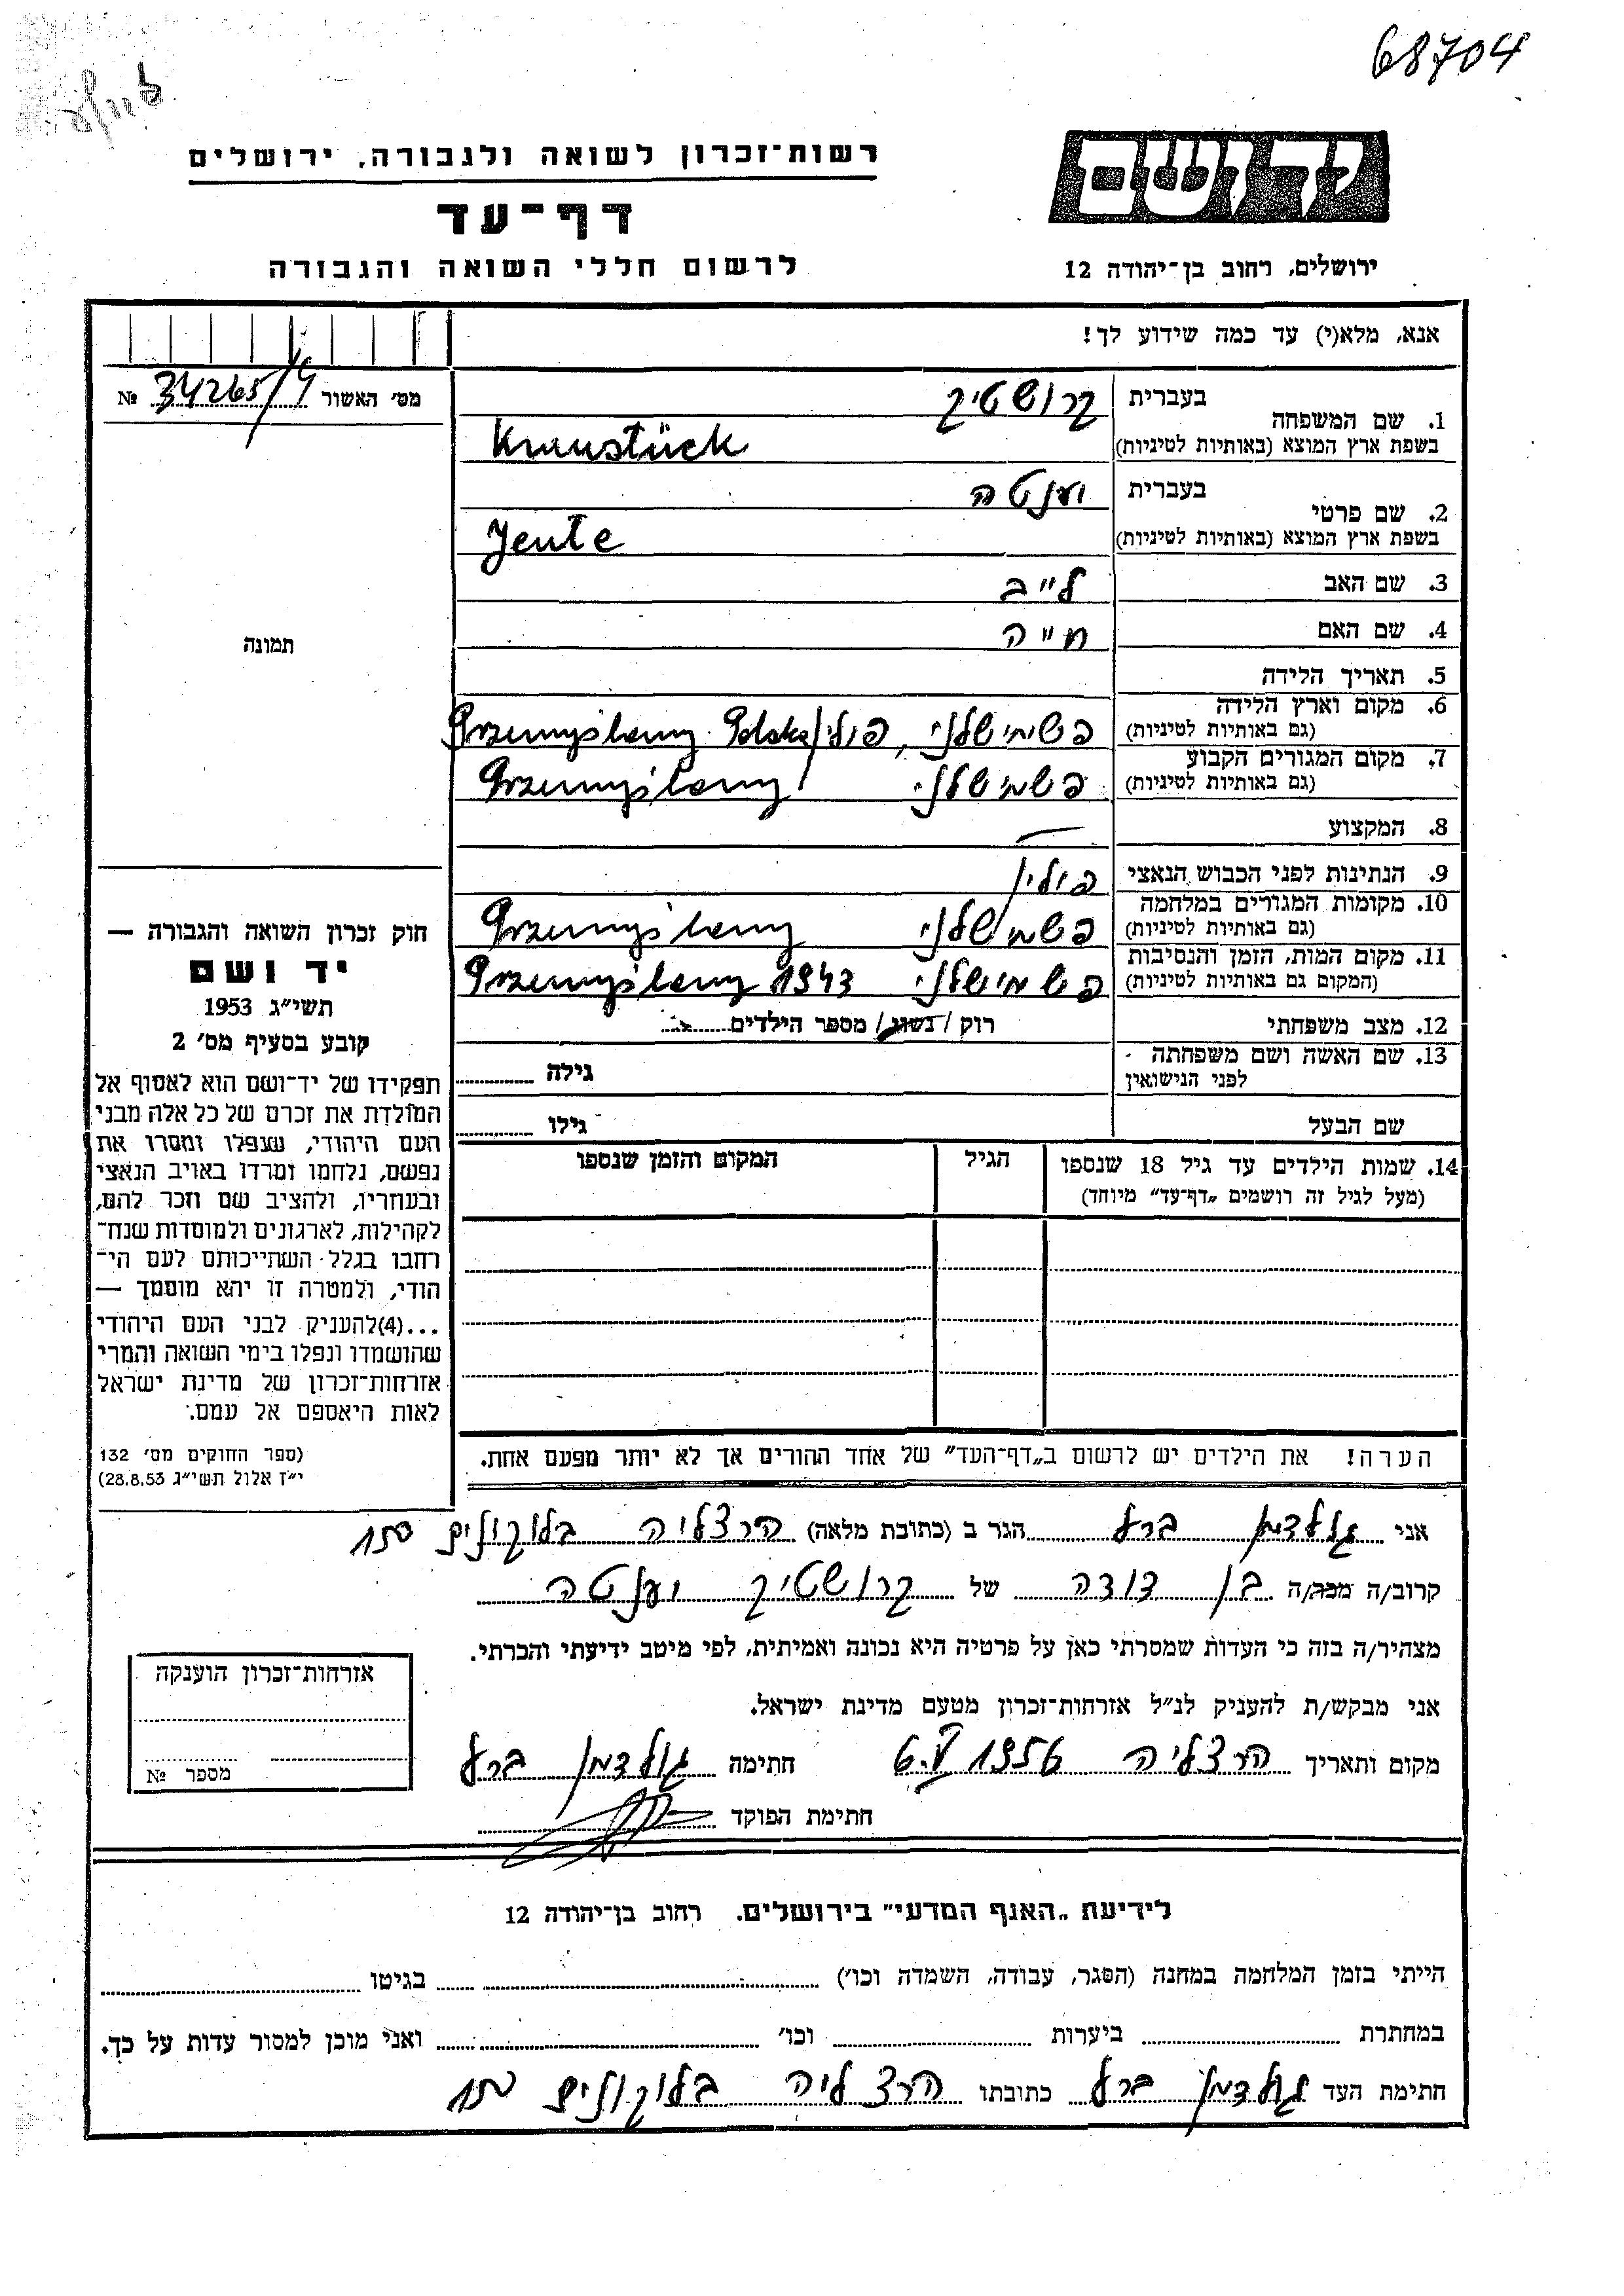 68704
יד ושם
רשות-זכרון לשואה ולגבורה, ירושלים
דף-עד
ירושלים, רחוב בן-יהודה 12
לרשום חללי השואה והגבורה
אנא, מלא(י) עד כמה שידוע לך!
מס׳ האשור № 34265/4
1. שם המשפחה
בעברית קרושטיק
בשפת ארץ המוצא (באותיות לטיניות) Kraustück
2. שם פרטי
בעברית יענטה
בשפת ארץ המוצא (באותיות לטיניות) Jente
3. שם האב לייב
4. שם האם חייה
תמונה
5. תאריך הלידה
6. מקום וארץ הלידה
(גם באותיות לטיניות) פשמישלני, פולין Przemyślany Polska
7. מקום המגורים הקבוע
(גם באותיות לטיניות) פשמישלני Przemyślany
8. המקצוע —
9. הנתינות לפני הכבוש הנאצי פולין
10. מקומות המגורים במלחמה
(גם באותיות לטיניות) פשמישלני Przemyślany
11. מקום המות, הזמן והנסיבות
(המקום גם באותיות לטיניות) פשמישלני Przemyślany 1943
12. מצב משפחתי רוק / נשוי / מספר הילדים
13. שם האשה ושם משפחתה
לפני הנישואין גילה
שם הבעל גילו
14. שמות הילדים עד גיל 18 שנספו הגיל המקום והזמן שנספו
(מעל לגיל זה רושמים „דף-עד” מיוחד)
חוק זכרון השואה והגבורה —
יד ושם
תשי״ג 1953
קובע בסעיף מס׳ 2
תפקידו של יד-ושם הוא לאסוף אל
המולדת את זכרם של כל אלה מבני
העם היהודי, שנפלו ומסרו את
נפשם, נלחמו ומרדו באויב הנאצי
ובעוזריו, ולהציב שם וזכר להם,
לקהילות, לארגונים ולמוסדות שנח-
רבו בגלל השתייכותם לעם הי-
הודי, ולמטרה זו יהא מוסמך —
...(4)להעניק לבני העם היהודי
שהושמדו ונפלו בימי השואה והמרי
אזרחות-זכרון של מדינת ישראל
לאות היאספם אל עמם.
(ספר החוקים מס׳ 132
י״ז אלול תשי״ג 28.8.53)
הערה! את הילדים יש לרשום ב„דף-העד” של אחד ההורים אך לא יותר מפעם אחת.
אני גולדמן ברל הגר ב (כתובת מלאה) הרצליה בלוקונים 150
קרוב/ה מכר/ה בן דודה של קרושטיק יענטה
מצהיר/ה בזה כי העדות שמסרתי כאן על פרטיה היא נכונה ואמיתית, לפי מיטב ידיעתי והכרתי.
אני מבקש/ת להעניק לנ״ל אזרחות-זכרון מטעם מדינת ישראל.
מקום ותאריך הרצליה 6.V.1956 חתימה גולדמן ברל
חתימת הפוקד
אזרחות-זכרון הוענקה
מספר №
לידיעת „האגף המדעי” בירושלים. רחוב בן-יהודה 12
הייתי בזמן המלחמה במחנה (הסגר, עבודה, השמדה וכו׳) בגיטו
במחתרת ביערות וכו׳ ואני מוכן למסור עדות על כך.
חתימת העד גולדמן ברל כתובתו הרצליה בלוקונים 150